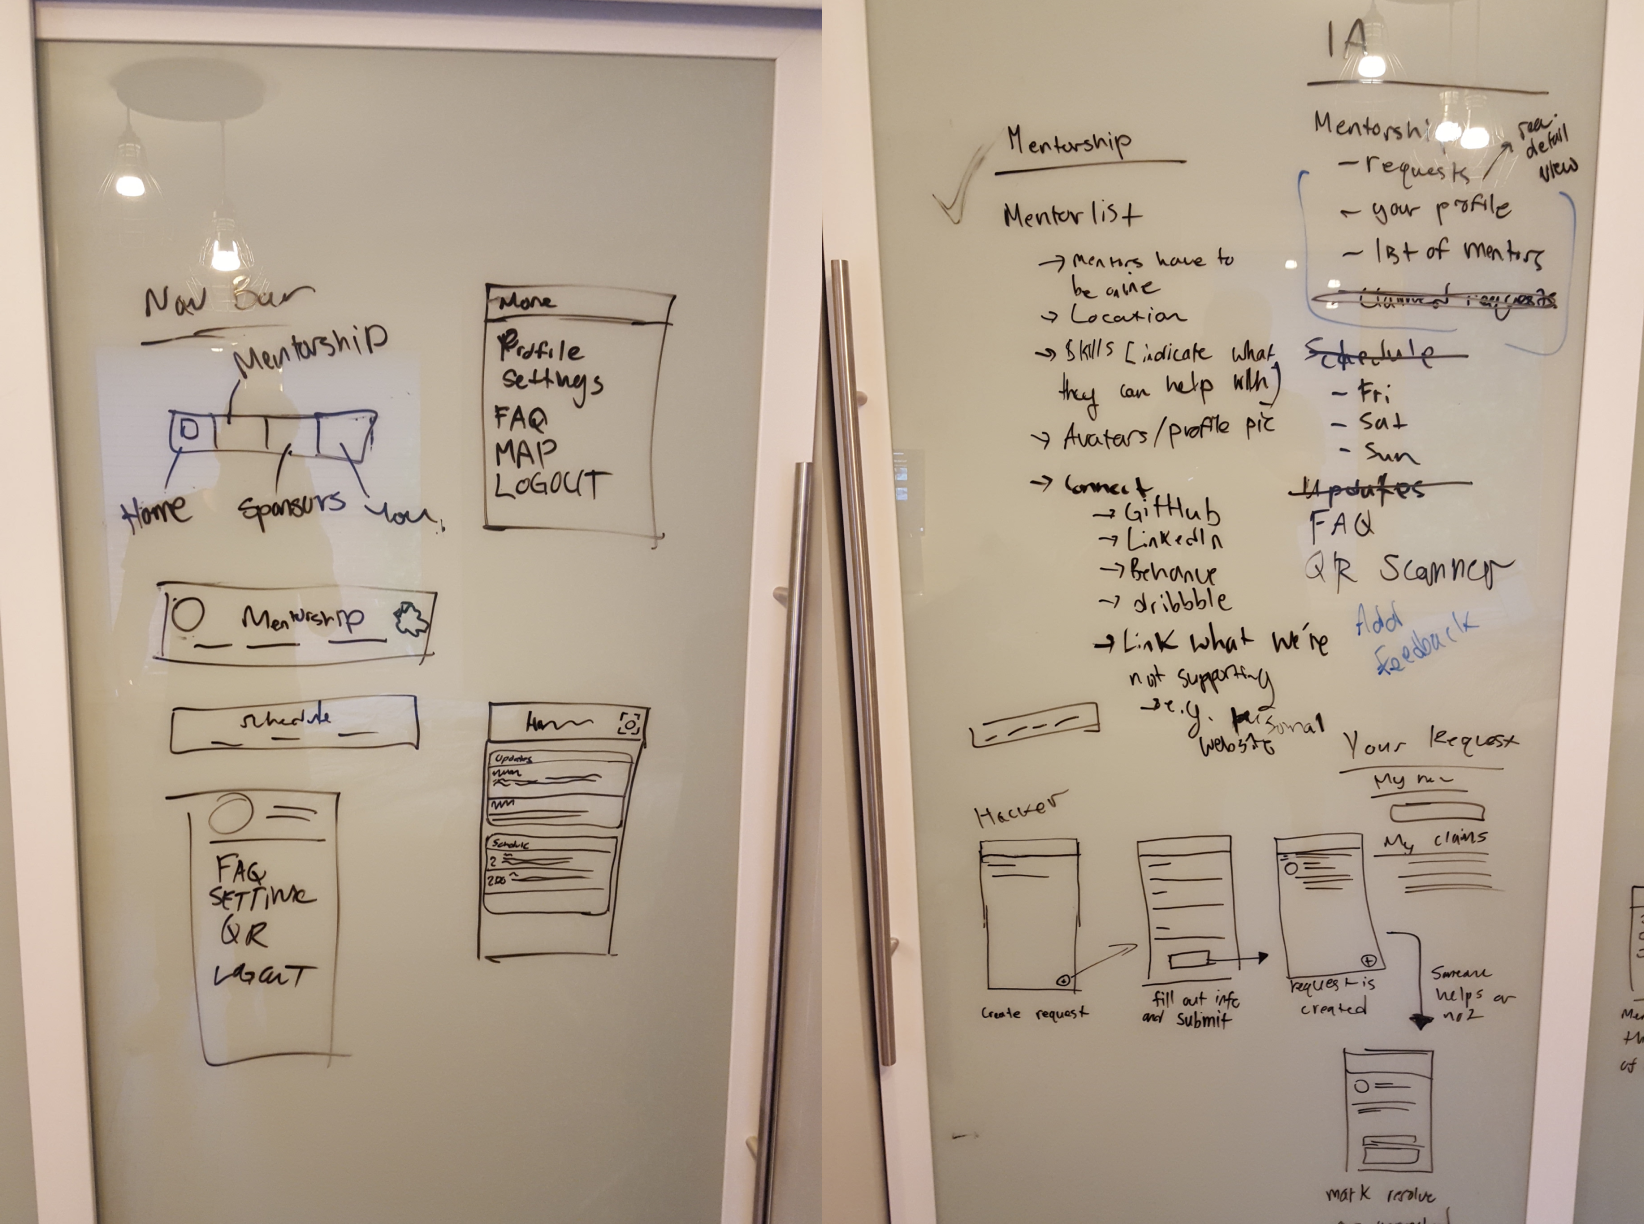 Nav Bar
Mentorship
Home
Sponsors
You
Mentorship
schedule
FAQ
SETTING
QR
LOGOUT
More
Profile
Settings
FAQ
MAP
LOGOUT
Home
Updates
Schedule
2
200
Mentorship
Mentor list
→ Mentors have to
be
→ Location
→ Skills [indicate what
they can help with]
→ Avatars/profile pic
→ Connect
→ GitHub
→ LinkedIn
→ Behance
→ dribbble
→ Link what we're
not supporting
→ e.g. personal
website
IA
Mentorship
- requests
detail
view
- your profile
- list of mentors
requests
Schedule
- Fri
- Sat
- Sun
Updates
FAQ
QR Scanner
Add
Feedback
Your Request
My
My claims
Hacker
create request
fill out info
and submit
request is
created
Someone
helps or
no?
mark resolve